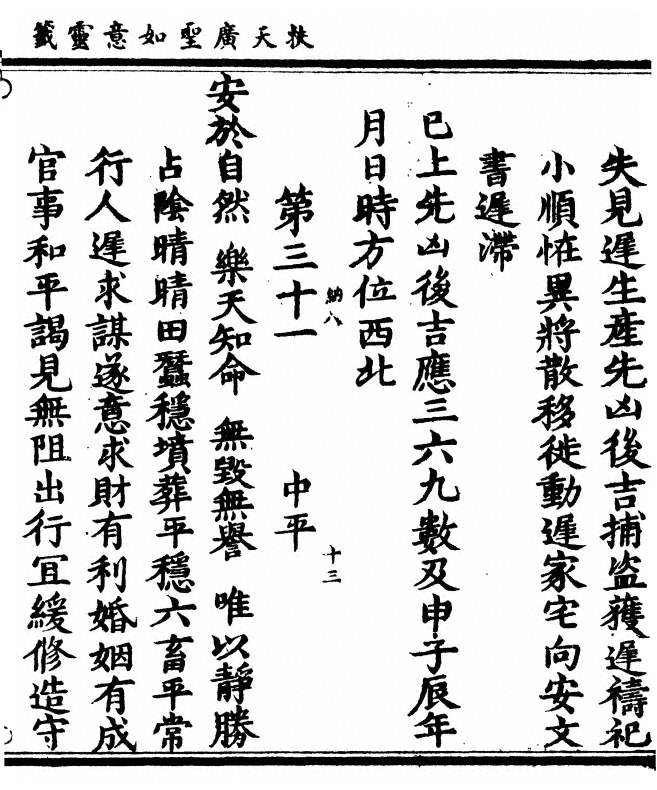 扶天廣聖如意靈籤
失見遲生產先凶後吉捕盜獲遲禱祀
小順恠異將散移徙動遲家宅向安文
書遲滯
已上先凶後吉應三六九數及申子辰年
月日時方位西北
第三十一 納八 中平 十三
安於自然 樂天知命 無毀無譽 唯以靜勝
占陰晴晴田蠶穩墳葬平穩六畜平常
行人遲求謀遂意求財有利婚姻有成
官事和平謁見無阻出行冝緩修造守